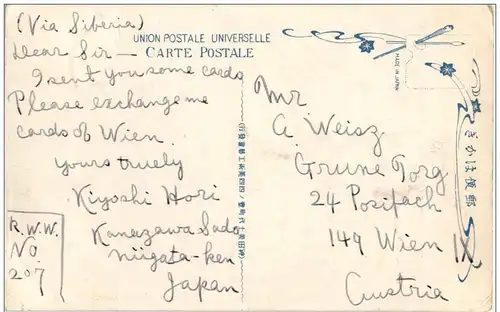 (Via Siberia)
UNION POSTALE UNIVERSELLE
CARTE POSTALE
Dear Sir —
I sent you some cards
Please exchange me
cards of Wien.
yours truely
Kiyoshi Hori
Kanazawa Sado
Niigata-ken
Japan
R.W.W.
No.
207
MADE IN JAPAN
Mr.
A. Weisz
Grune Torg
24 Postfach
149 Wien IX
Austria
きかは便郵